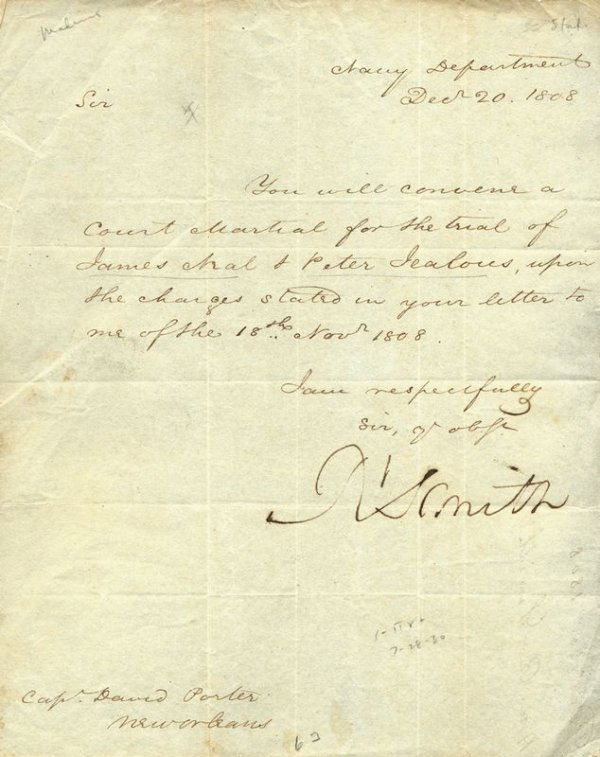 Navy Department
Decr 20. 1808
Sir
You will convene a
Court Martial for the trial of
James Neal & Peter Jealous, upon
the charges stated in your letter to
me of the 18th Novr 1808.
I am respectfully
Sir, yr obst
Rt Smith
7-28-30
Capt. David Porter
New Orleans
63